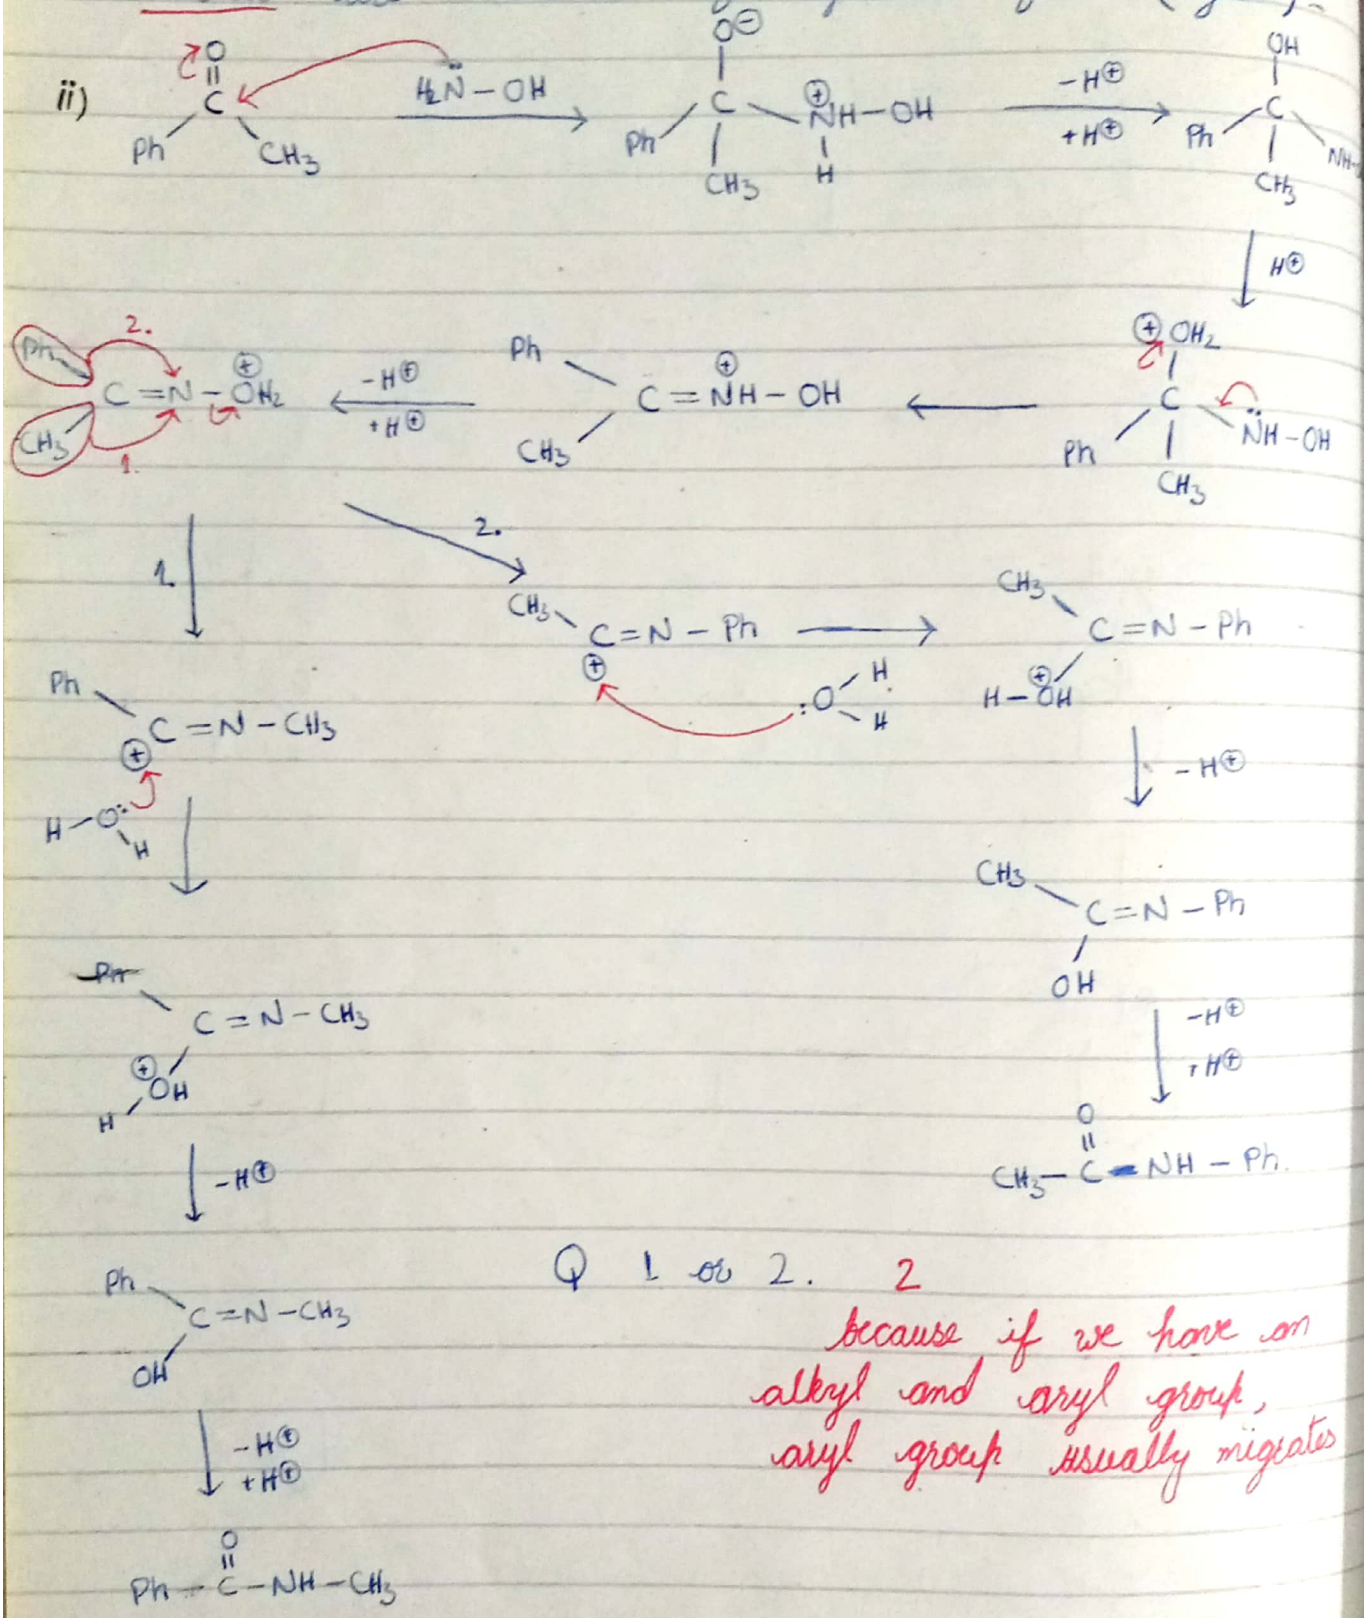 ii)
O
||
C
Ph CH₃
H₂N̈ – OH
O⊖
C
Ph
CH₃
⊕
NH – OH
H
-H⊕
+H⊕
OH
C
Ph
CH₃
NH-
H⊕
⊕ OH₂
C
Ph
CH₃
N̈H – OH
Ph
CH₃
C = NH – OH
⊕
-H⊕
+H⊕
Ph
CH₃
C = N – OH₂
⊕
2.
1.
1.
2.
CH₃
C = N – Ph
⊕
:O
H
H
CH₃
C = N – Ph
⊕
H – OH
-H⊕
CH₃
C = N – Ph
OH
-H⊕
+H⊕
O
||
CH₃ – C – NH – Ph.
Ph
C = N – CH₃
⊕
H – O:
H
Ph
C = N – CH₃
⊕
OH
H
-H⊕
Ph
C = N – CH₃
OH
-H⊕
+H⊕
O
||
Ph – C – NH – CH₃
Q 1 or 2. 2
because if we have an
alkyl and aryl group,
aryl group usually migrates